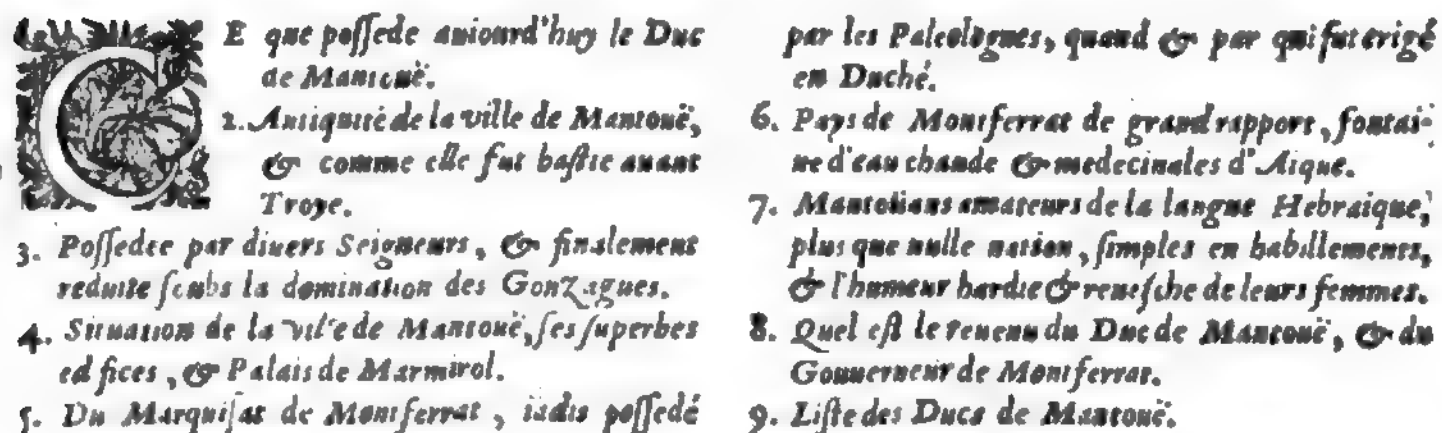 CE que poſſede auiourd'huy le Duc
de Mantouë.
2. Antiquité de la ville de Mantouë,
& comme elle fut baſtie auant
Troye.
3. Poſſedee par diuers Seigneurs, & finalement
reduite ſoubs la domination des Gonzagues.
4. Situation de la ville de Mantouë, ſes ſuperbes
edifices, & Palais de Marmirol.
5. Du Marquiſat de Montferrat, iadis poſſedé
par les Paleologues, quand & par qui fut erigé
en Duché.
6. Pays de Montferrat de grand rapport, fontai-
ne d'eau chaude & medecinales d'Aique.
7. Mantoüans amateurs de la langue Hebraique,
plus que nulle nation, ſimples en habillements,
& l'humeur hardie & reueſche de leurs femmes.
8. Quel eſt le reuenu du Duc de Mantouë, & du
Gouuerneur de Montferrat.
9. Liſte des Ducs de Mantouë.